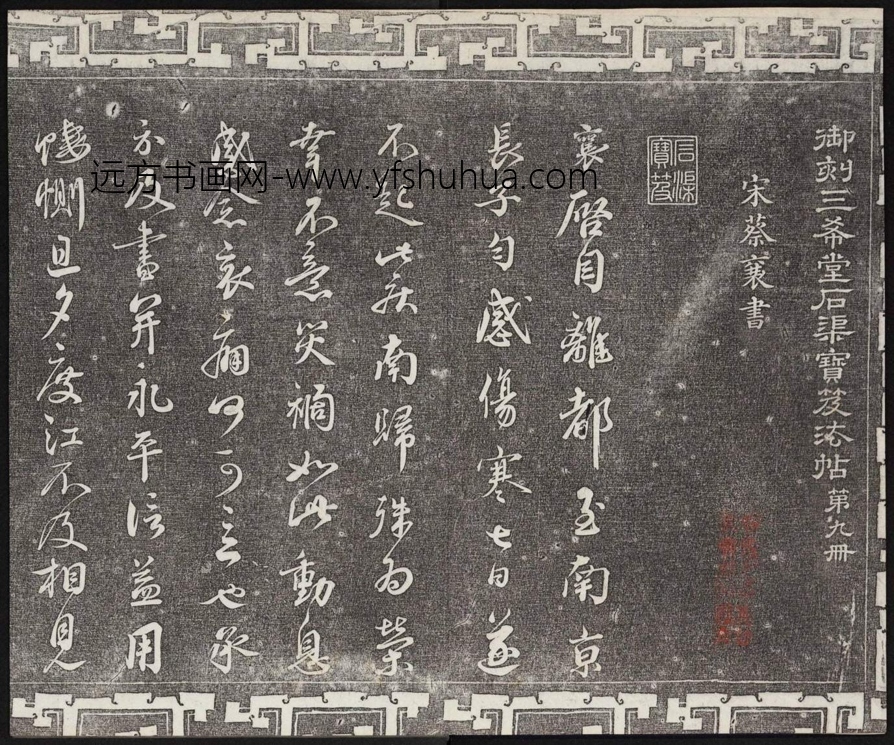 御刻三希堂石渠寶笈法帖 第九冊
宋蔡襄書
石渠寶笈
襄啓自離都至南京
長子勻感傷寒七日遂
不起此疾南歸殊爲榮
幸不意災禍如此動息
感念哀痛何可言也承
示及書并永平信益用
悽惻旦夕度江不及相見
远方书画网-www.yfshuhua.com